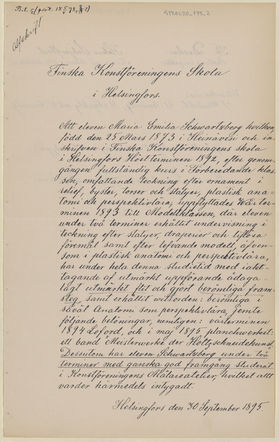 Finska Konstföreningens Skola
i Helsingfors.
Att eleven Maria Emilia Schwartzberg hvilken
född den 25 Mars 1873 i Heinävesi och in-
skrifven i Finska Konstföreningens skola
i Helsingfors Höstterminen 1892, efter genom-
gången fullständig kurs i Förberedande klas-
sen, omfattande teckning efter ornament i
relief, byster, torser och statyer, plastisk ana-
tomi och perspektivlära, uppflyttades Vårter-
minen 1893 till Modellklassen, där eleven
under två terminer erhållit undervisning i
teckning efter statyer, draperier och lifflösa
föremål samt efter lefvande modell, äfven-
som i plastisk anatomi och perspektivlära,
har under hela denna studietid med iakt-
tagande af utmärkt uppförande ådaga-
lagt utmärkt flit och gjort berömliga fram-
steg, samt erhållit vitsorden: berömliga i
såväl Anatomi som perspektivlära, jemte
följande belöningar, nemligen: vårterminen
1894 Loford, och i maj 1895 planchverket
ett band Meisterwerke der Holzschneidekunst.
Dessutom har eleven Schwartzberg under två
terminer med ganska god framgång studerat
i Konstföreningens Målareatelier, hvilket allt
varder härmedels intygadt.
Helsingfors den 30 September 1895.